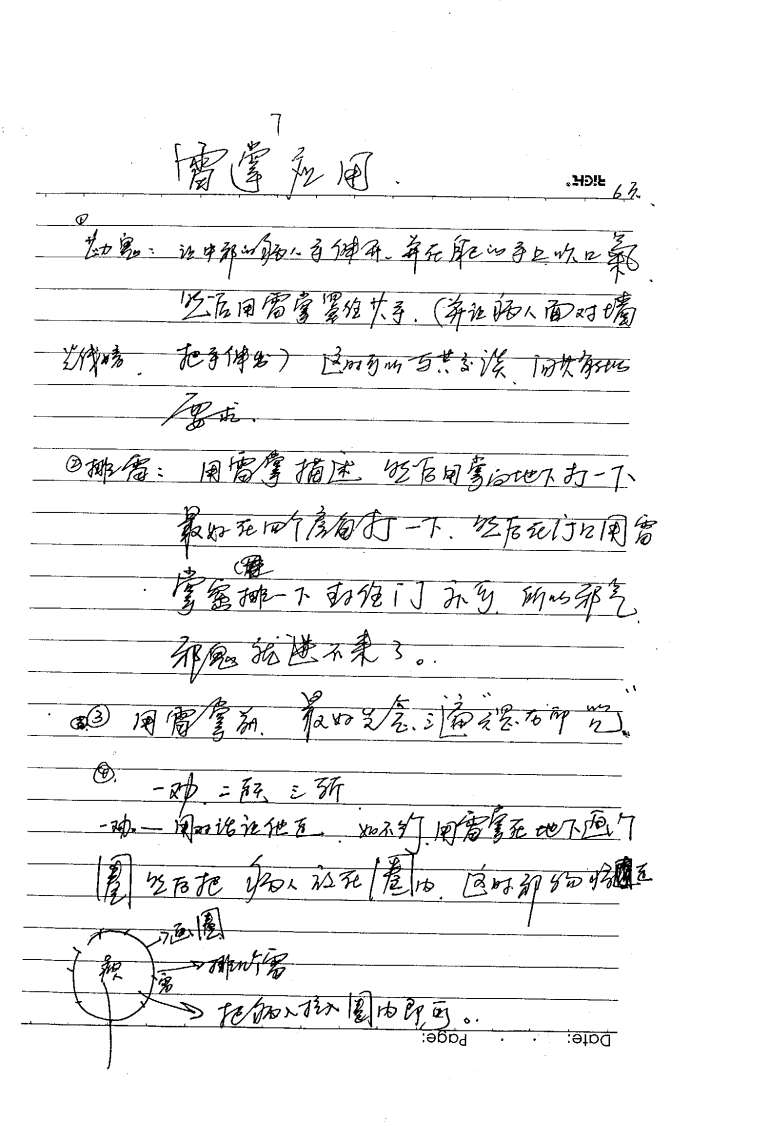 7
雷掌应用.
RICH®
6元.
① 劝鬼: 让中邪的病人手伸开. 并在自己的手上吹口氣
然后用雷掌罩住其手. (并让病人面对墙
光线暗. 把手伸出) 这时可以与其交谈. 问其有啥
要求.
②排雷: 用雷掌描述 然后用掌向地下打一下
最好在四个房角打一下. 然后在门口用雷
掌 排一下 封住门 亦可. 所以邪气
邪鬼就进不来了。
③ 用雷掌前. 最好先念三遍“ 咒”
④. 一劝. 二 三斩
一劝.—用对话让他 . 如不行. 用雷掌在地下画个
圈 然后把病人放在圈内. 这时邪物
画圈
排个雷
雷
把病人拉入圈内即可。
Date: Page: